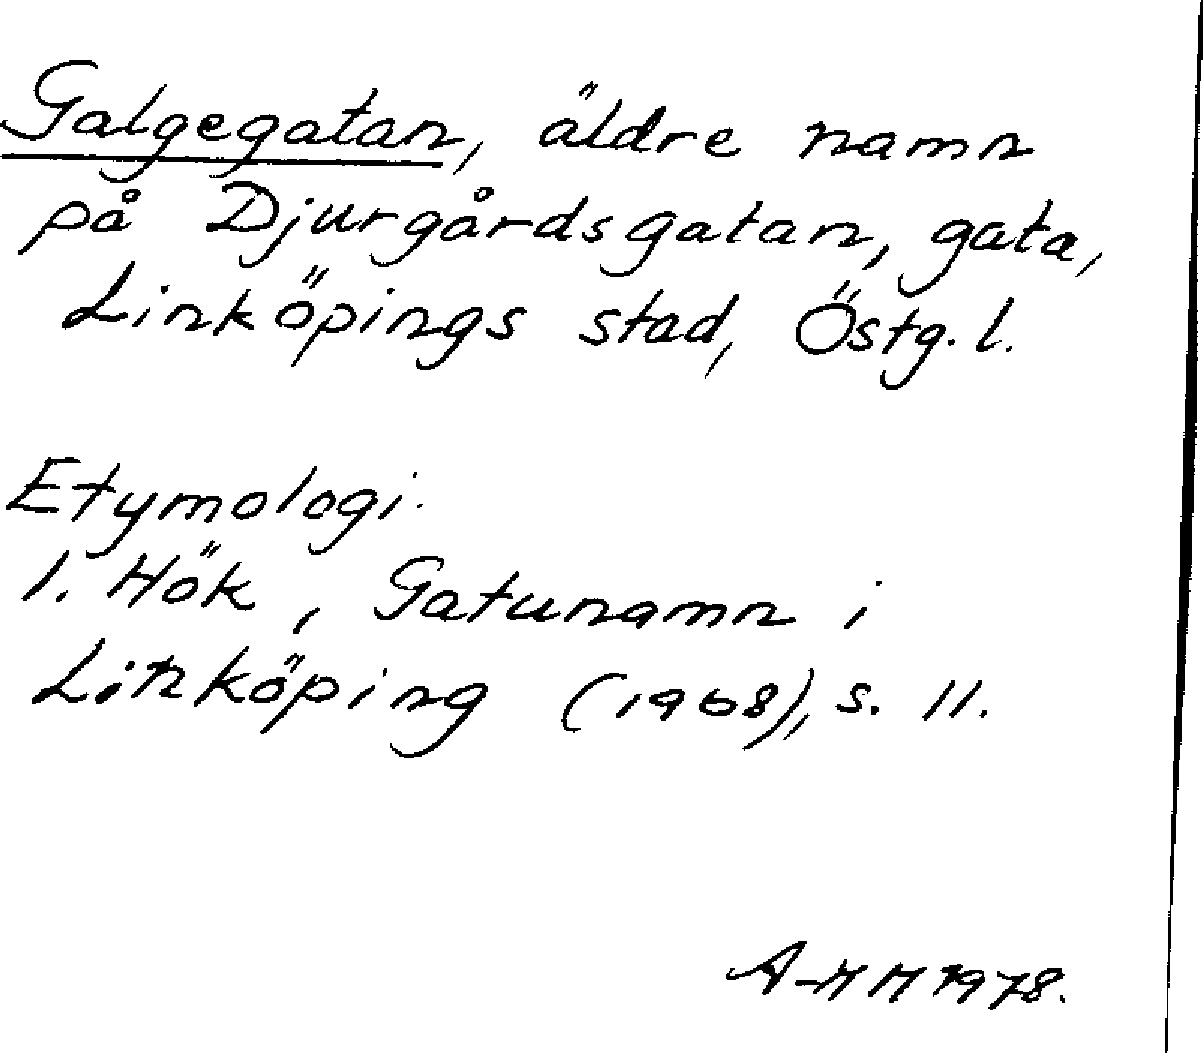 Galgegatan, äldre namn
på Djurgårdsgatan, gata,
Linköpings stad, Östg. l.
Etymologi.
I. Hök, Gatunamn i
Linköping (1968), s. 11.
A-MM 1978.